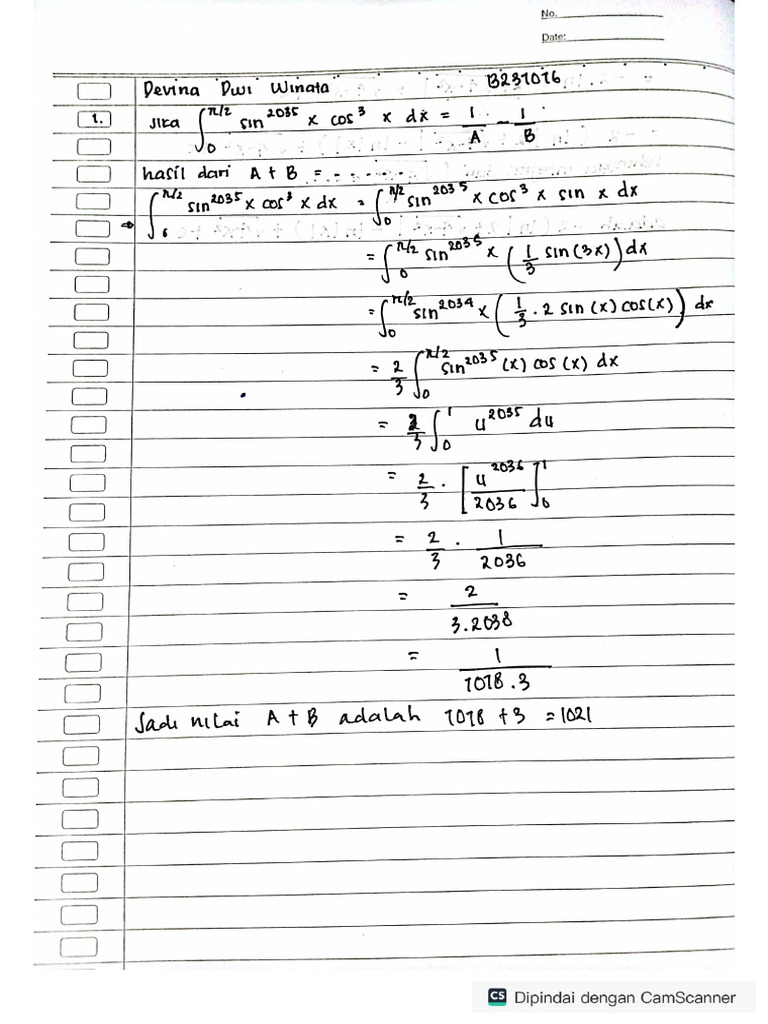 No.
Date:
Devina Dwi Winata B231016
1. Jika ∫₀^(π/2) sin^2035 x cos^3 x dx = 1/A - 1/B
hasil dari A + B = - - - - -
⇒ ∫₀^(π/2) sin^2035 x cos^3 x dx = ∫₀^(π/2) sin^2035 x cos^3 x sin x dx
= ∫₀^(π/2) sin^2035 x (1/3 sin(3x)) dx
= ∫₀^(π/2) sin^2034 x (1/3 . 2 sin (x) cos(x)) dx
= 2/3 ∫₀^(π/2) sin^2035 (x) cos (x) dx
= 2/3 ∫₀^1 u^2035 du
= 2/3 . [u^2036/2036]₀^1
= 2/3 . 1/2036
= 2/(3.2038)
= 1/(1018.3)
Jadi nilai A + B adalah 1018 + 3 = 1021
CS Dipindai dengan CamScanner